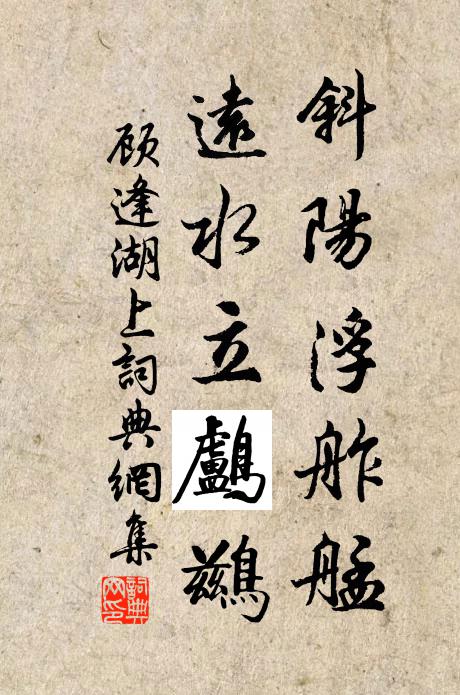 斜陽浮舴艋
遠水立鸕鷀
顾逢湖上詞典網集
詞典网印